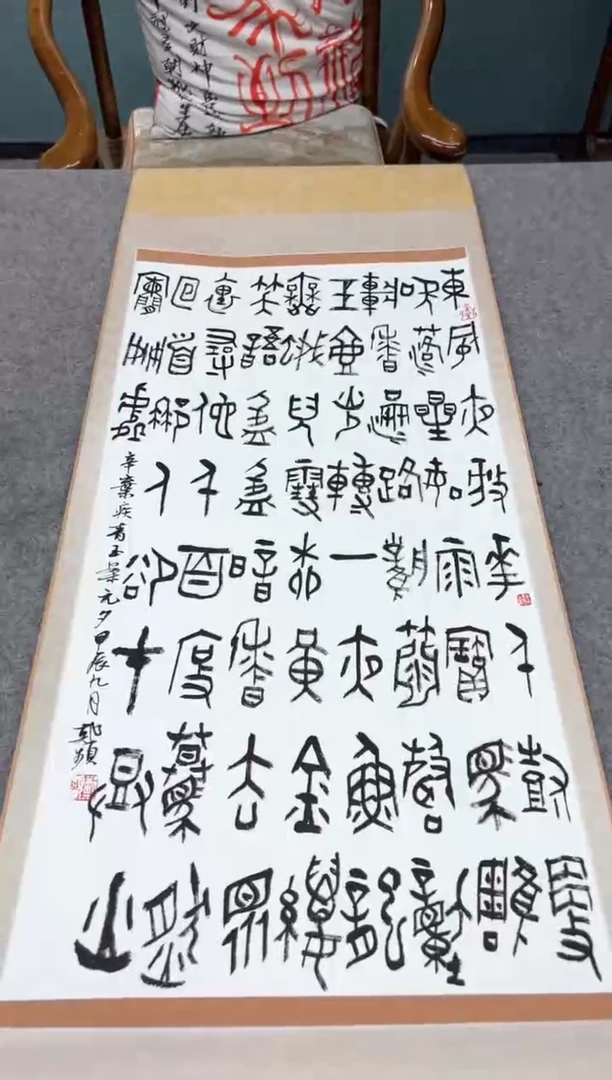 東風夜放花千尌更
吹落星如雨寶馬雕
車香滿路鳳簫聲動
王壺光轉一夜魚龍
舞蛾兒雪柳黃金縷
笑語盈盈暗香去眾
裏尋他千百度驀然
回首那人卻在燈火
闌珊處
辛棄疾青玉案元夕甲辰九月